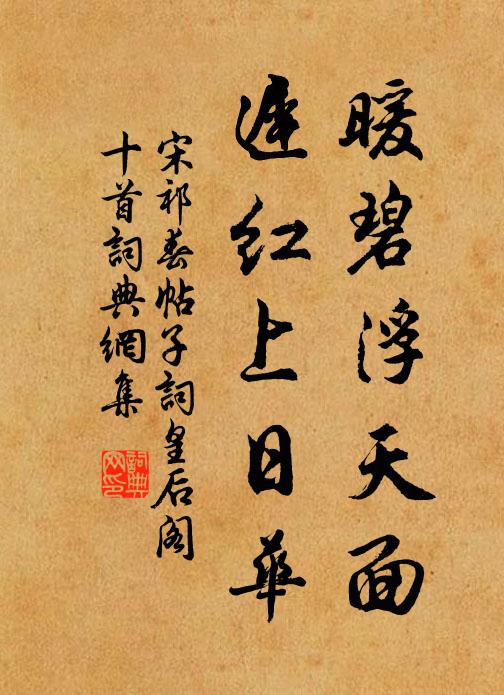 暖碧浮天面
遲紅上日華
宋祁春帖子詞皇后閣
十首詞典網集
詞典网印